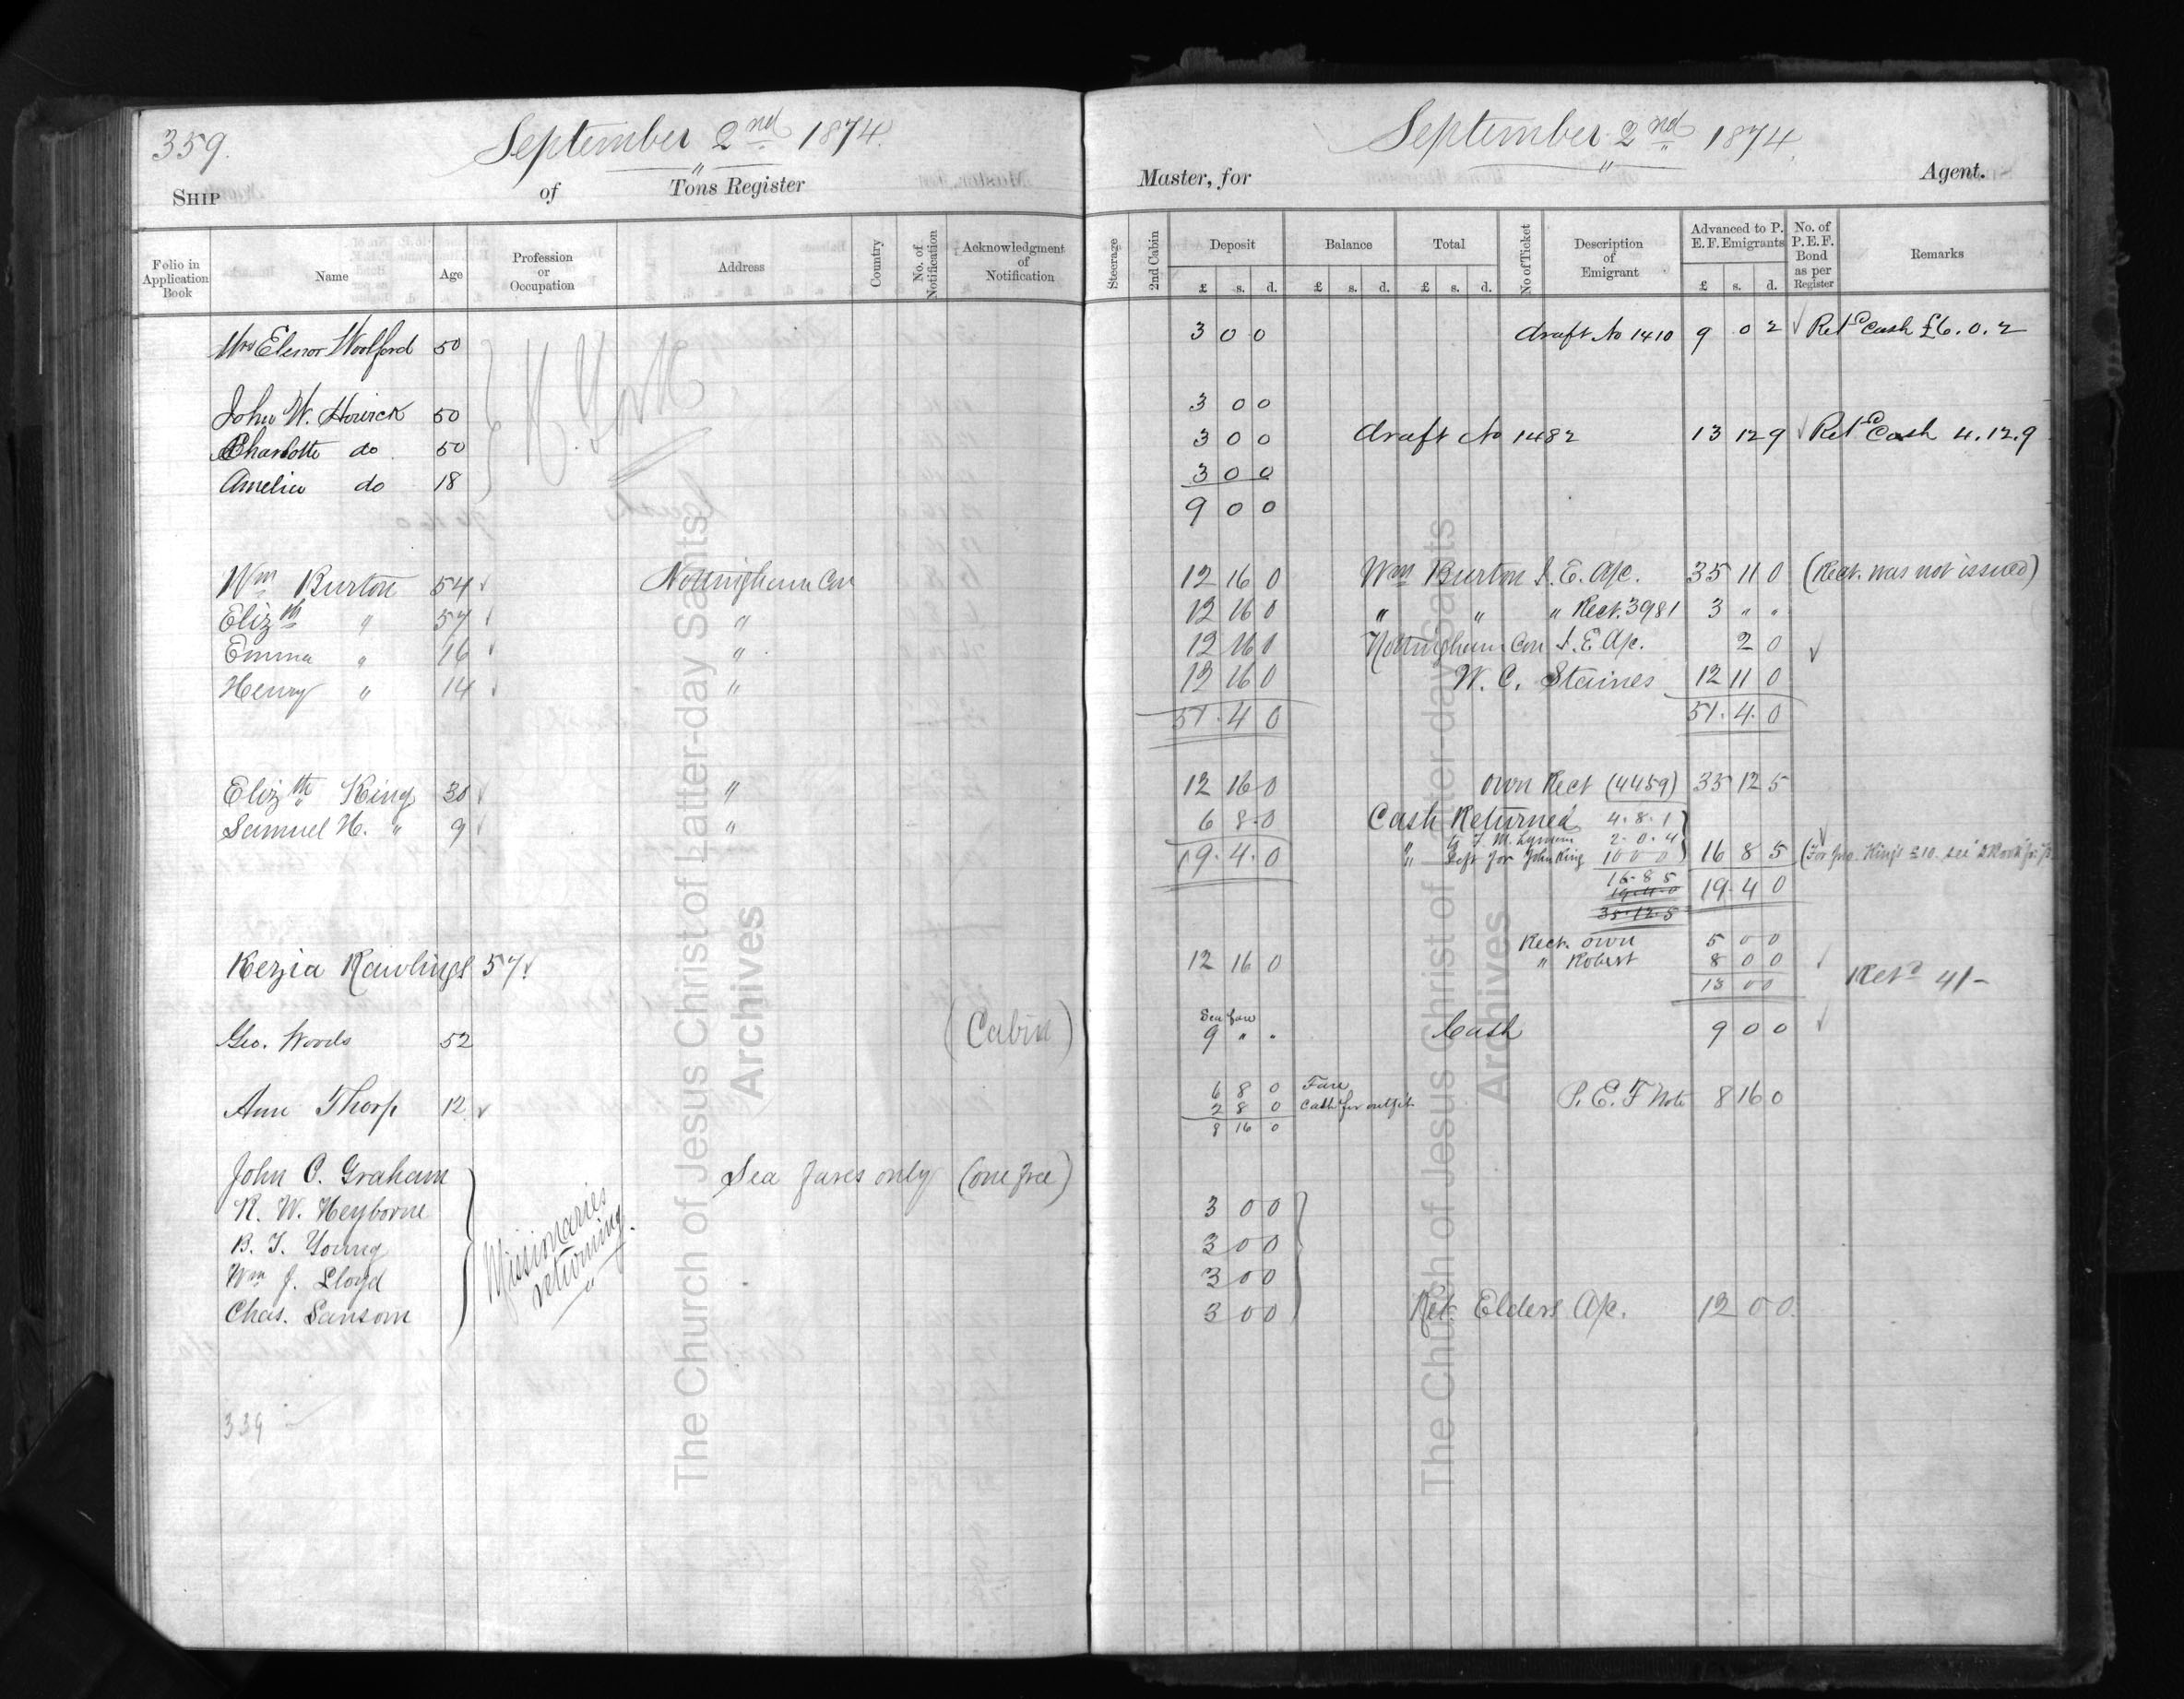 359.
September 2nd 1874.
SHIP of Tons Register
Folio in Application Book
Name
Age
Profession or Occupation
Address
Country
No. of Notification
Acknowledgment of Notification
Mrs Elenor Woolford 50
John W. 50
Charlotte do 50
Amelia do 18
Wm Burton 54 ✓ Nottingham Con
Elizth " 57 ✓ "
Emma " 16 ✓ "
Henry " 14 ✓ "
Elizth King 30 ✓ "
Samuel H. " 9 ✓ "
Kezia Rawlings 57 ✓
Geo. Woods 52 (Cabin)
Ann Thorp 12 ✓
John C. Graham Sea fares only (one free)
R. W. Heyborne
B. T. Young
Wm J. Lloyd
Chas. Sansom
Missionaries
returning.
339
The Church of Jesus Christ of Latter-day Saints
Archives
September 2nd 1874.
Master, for Agent.
Steerage
2nd Cabin
Deposit £ s. d.
Balance £ s. d.
Total £ s. d.
No of Ticket
Description of Emigrant
Advanced to P. E. F. Emigrants £ s. d.
No. of P. E. F. Bond as per Register
Remarks
3 0 0 draft No 1410 9 0 2 ✓ Retd Cash £6.0.2
3 0 0
3 0 0 draft No 1482 13 12 9 ✓ Retd Cash 4.12.9
3 0 0
9 0 0
12 16 0 Wm Burton I. E. A/c. 35 11 0 (Rect. was not issued)
12 16 0 " " " Rect. 3981 3 " "
12 16 0 Nottingham Con I. E A/c. 2 0 ✓
12 16 0 W. C. Staines 12 11 0
51. 4 0 51. 4. 0
12 16 0 Own Rect (4459) 35 12 5
6 8 0 Cash Returned 4. 8. 1
" to F. M. Lyman 2. 0. 4
19. 4. 0 " Dept for John King 10 0 0 16 8 5 (For Jno. King's £10. see
16. 8 5
19. 4. 0 19. 4 0
35. 12. 5
Rect. own 5 0 0
12 16 0 " Robert 8 0 0 ✓
13 0 0 Retd 4/-
Sea fare
9 " " Cash 9 0 0 ✓
6 8 0 Fare
2 8 0 Cash for outfit P. E. F Note 8 16 0
8 16 0
3 0 0
3 0 0
3 0 0
3 0 0 Ret. Elders A/c. 12 0 0
The Church of Jesus Christ of Latter-day Saints
Archives